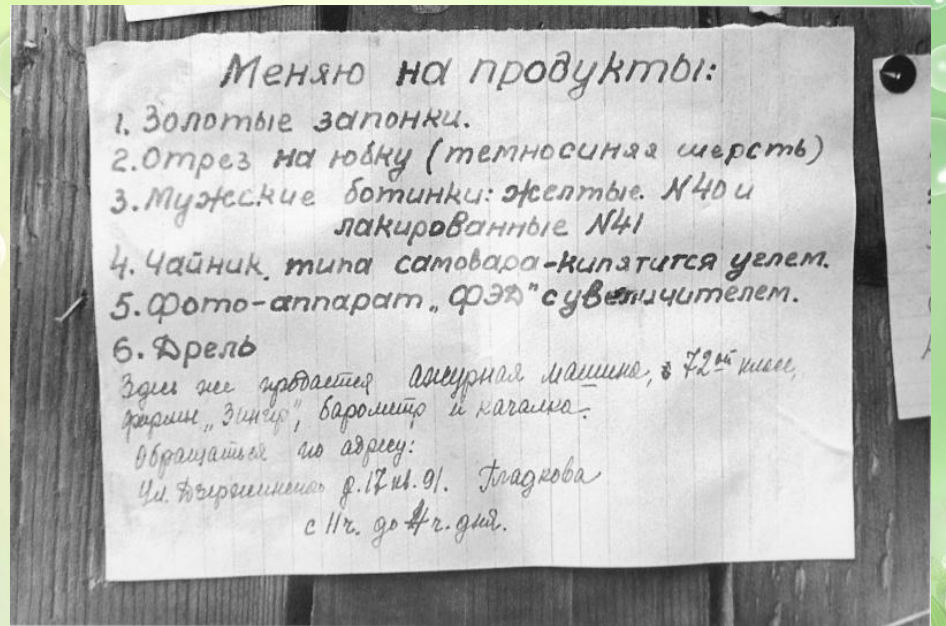 Меняю на продукты:
1. Золотые запонки.
2. Отрез на юбку (темносиняя шерсть)
3. Мужские ботинки: желтые N40 и
лакированные N41
4. Чайник типа самовара-кипятится углем.
5. Фото-аппарат „ФЭД" с увеличителем.
6. Дрель
Здесь же продается ажурная машина, 72ой класс,
фирмы „Зингер", барометр и качалка.
Обращаться по адресу:
Ул. Дзержинского д. 17 кв. 91. Гладкова
с 11 ч. до 4 ч. дня.